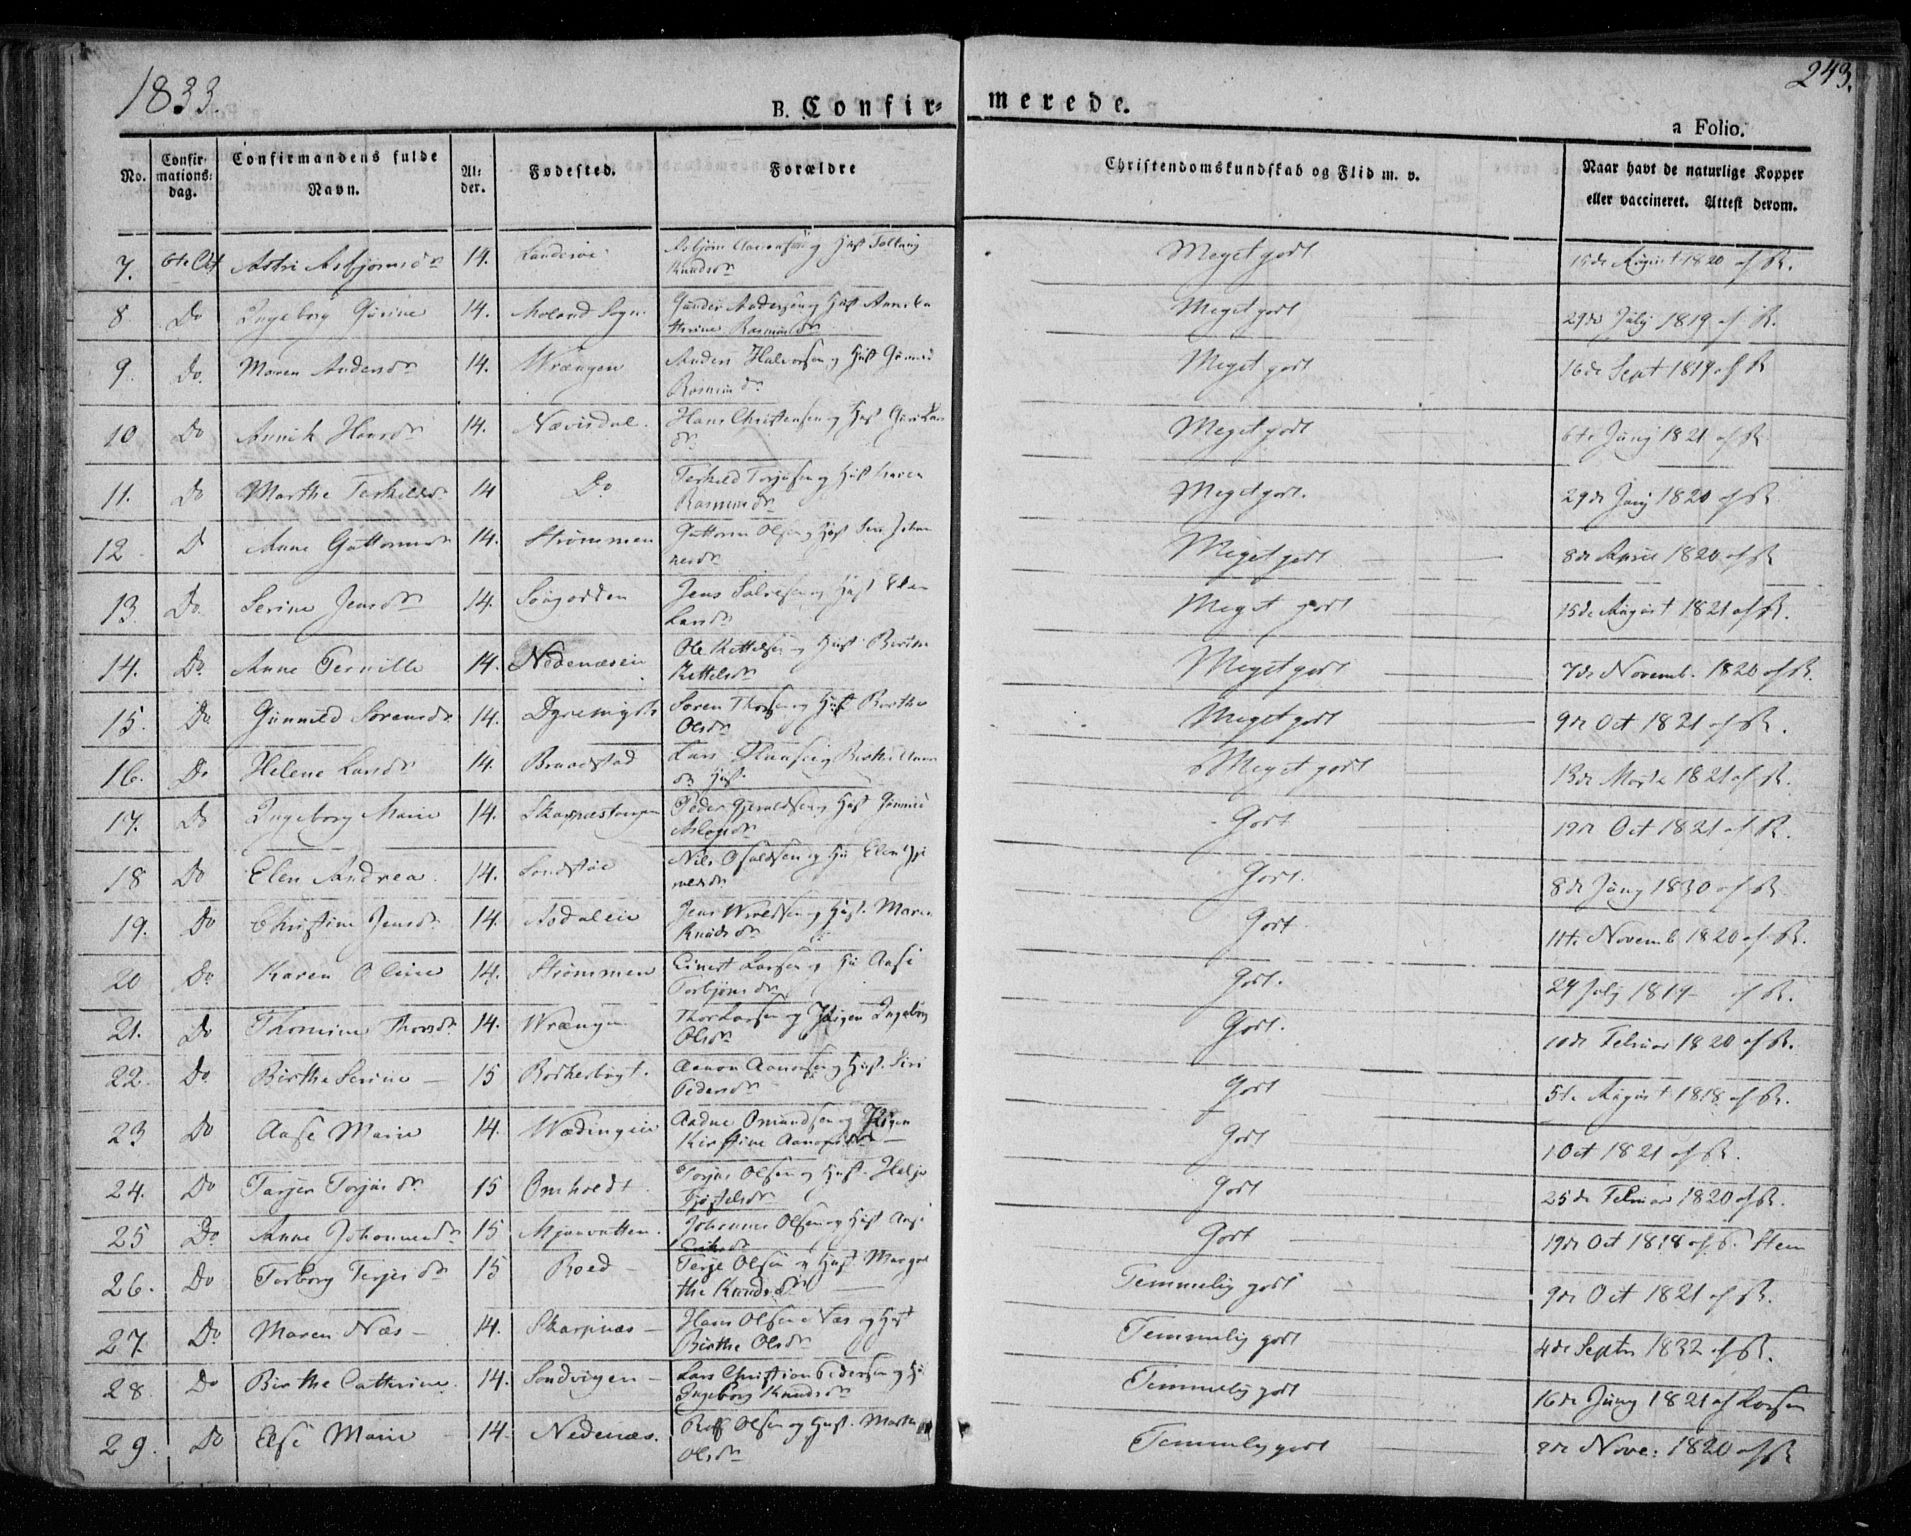 1833.
243.
B. Confir-
merede.
a Folio.
No.
Confir-
mations-
dag.
Confirmandens fulde
Navn.
Al-
der.
Fødested.
Forældre
Christendomskundskab og Flid m. v.
Naar havt de naturlige Kopper
eller vaccineret. Attest derom.
7. 6te Oct Astri Asbjørnsdr 14. Asbjørn og Hust
Knudsdr Meget godt 15de August 1820 af R.
8. Do Ingeborg Gurine 14. Moland Sogn Gunder Andersen og Hust Annika
thrine Rasmusdr Meget godt 29de July 1819 af R.
9. Do. Maren Andersdr 14. Wrængen Anders Halvorsen og Hust Gunnild
Rasmusdr Meget godt 16de Sept 1819 af R
10 Do Annik Hansdr 14. Nævisdal. Hans Christensen og Hust. Guri Lars
dr. Meget godt 6te Juny 1821 af R
11. Do Marthe Terkildsdr 14 Do Terkild Torjusen og Hust Maren
Rasmusdr Meget godt. 29de Juny 1820 af R
12. D Anne Guttormsdr 14. Strømmen Guttorm Olsen og Hust Siri Johan
nesdr Meget godt 8de April 1820 af R
13. Do. Serine Jensdr 14. Jens Salvesen og Hust Elen
Larsdr Meget godt 15de August 1821 af R.
14. Do. Anne Pernille 14. Nedenæseie Ole Kittelsen og Hust Berthe
Kittelsdr Meget godt 7de Novemb. 1820 af R.
15. Do Gunnild Sorensdr 14. Soren Thorsen og Hust Berthe
Olsdr Meget godt 9de Oct 1821 af R.
16. Do Helene Larsdr 14. Braastad Lars og Berthe
dr Hust. Meget godt 13de Marts 1821 af R.
17. Do Ingeborg Marie 14. Peder Gjeruldsen og Hust Gunnild
Aslagsdr Godt 19de Oct 1821 af R.
18 Do Elen Andrea. 14. Sandstøe Nils Osuldsen og Hu Elen
Godt. 8de Juny 1830 af R
19. Do Christine Jensdr 14. Asdaleie Jens og Hust. Maren
Knudsdr Godt. 11te Novemb 1820 af R.
20 Do Karen Oline 14. Strømmen Einert Larsen og Hu Aase
Torbjørnsdr Godt. 24 July 1819 af R.
21. Do Thomine Thorsdr 14. Wrængen Thor Larsen og Pigen Ingeborg
Olsdr Godt. 10de Februar 1820 af R.
22. Do Birthe Serine 15 Aanon Aanonsen og Hust. Siri
Pedersdr Godt 5te August 1818 af R.
23 Do Aase Marie 14. Wædingeie Aadne Omundsen og Pigen
Kirstine Aanonsdr Godt 1 Oct 1821 af R.
24. Do Tarjer Torjusdr 15 Omholdt Torjus Olsen og Hust. Helje
Godt 25de Februar 1820 af R.
25 Do Anne Johannesdr 15 Mjaavatten. Johannes Olsen og Hust Aase
Eriksdr Godt 19de Oct 1818 af
26. Do Torborg Terjesdr 15 Roed Terje Olsen og Hust Margre
the Knudsdr Temmelig godt 9de Oct 1821 af R.
27. Do Maren Næs 14. Skarpnæs Hans Olsen Næs og Hust
Birthe Olsdr Temmelig godt 4de Septr 1832 af R.
28 Do Birthe Cathrine. 14. Sandvigen Lars Christian Pedersen og Hu
Ingeborg Knudsdr Temmelig godt 16de Juny 1821 af Larsen
29. Do Else Marie 14. Nedenæs. Rolf Olsen og Hust. Marthe
Olsdr Temmelig godt 8de Nove: 1820 af R